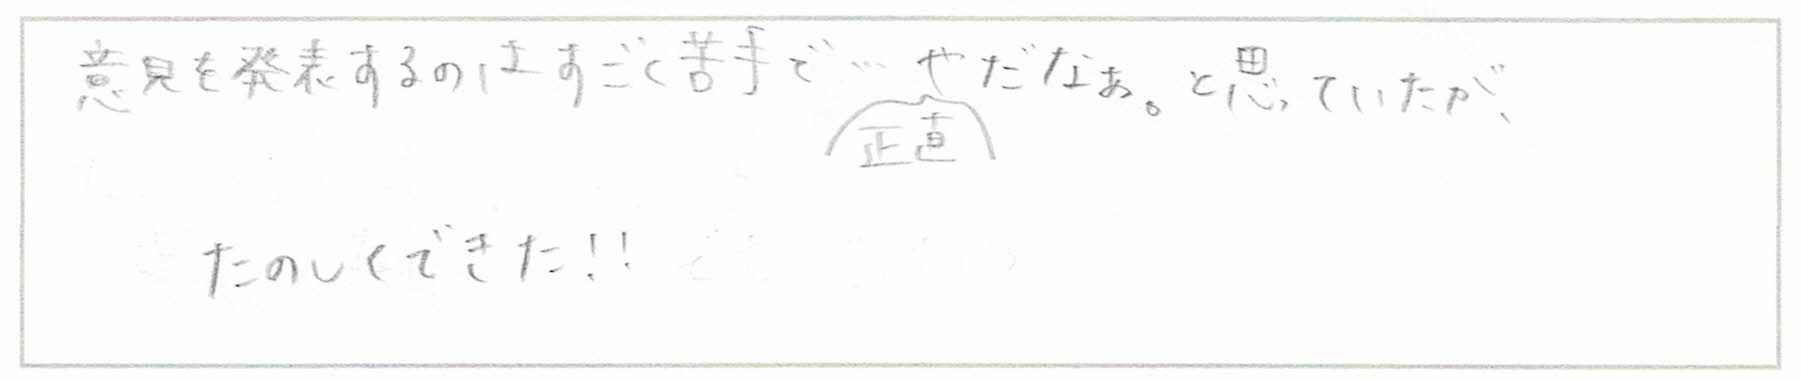 意見を発表するのはすごく苦手で… やだなぁ。と思っていたが、
正直
たのしくできた!!